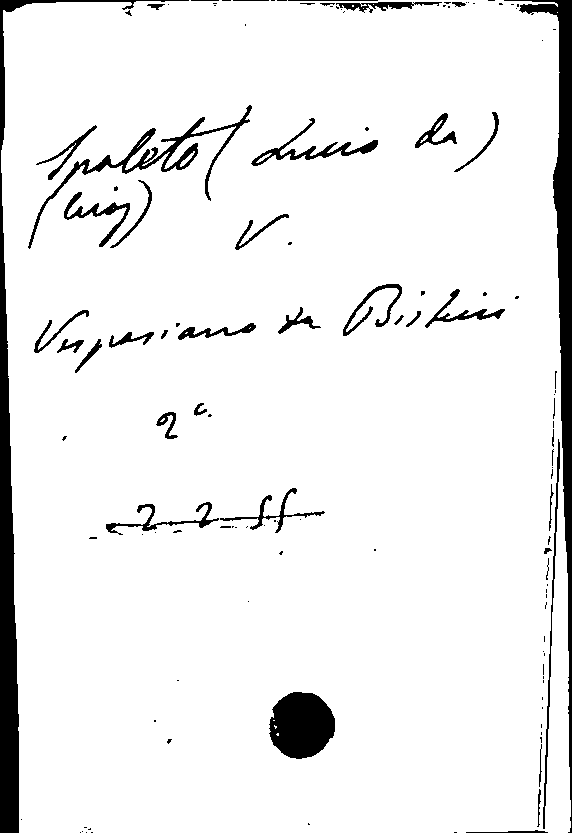 Spoleto (Lucio da)
V.
Vespasiano da Bisticci
2º
2 2 55